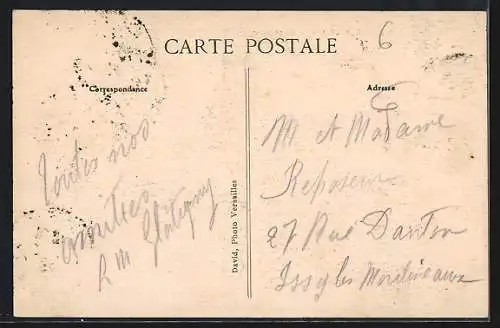 6
CARTE POSTALE
Correspondance
Adresse
Toutes nos
amitiés
L M
David, Photo Versailles
M et Madame
27 Rue Danton
Issy les Moulineaux